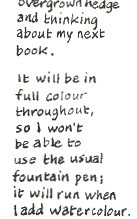 overgrown hedge
and thinking
about my next
book.
It will be in
full colour
throughout,
so I won't
be able to
use the usual
fountain pen;
it will run when
I add watercolour.